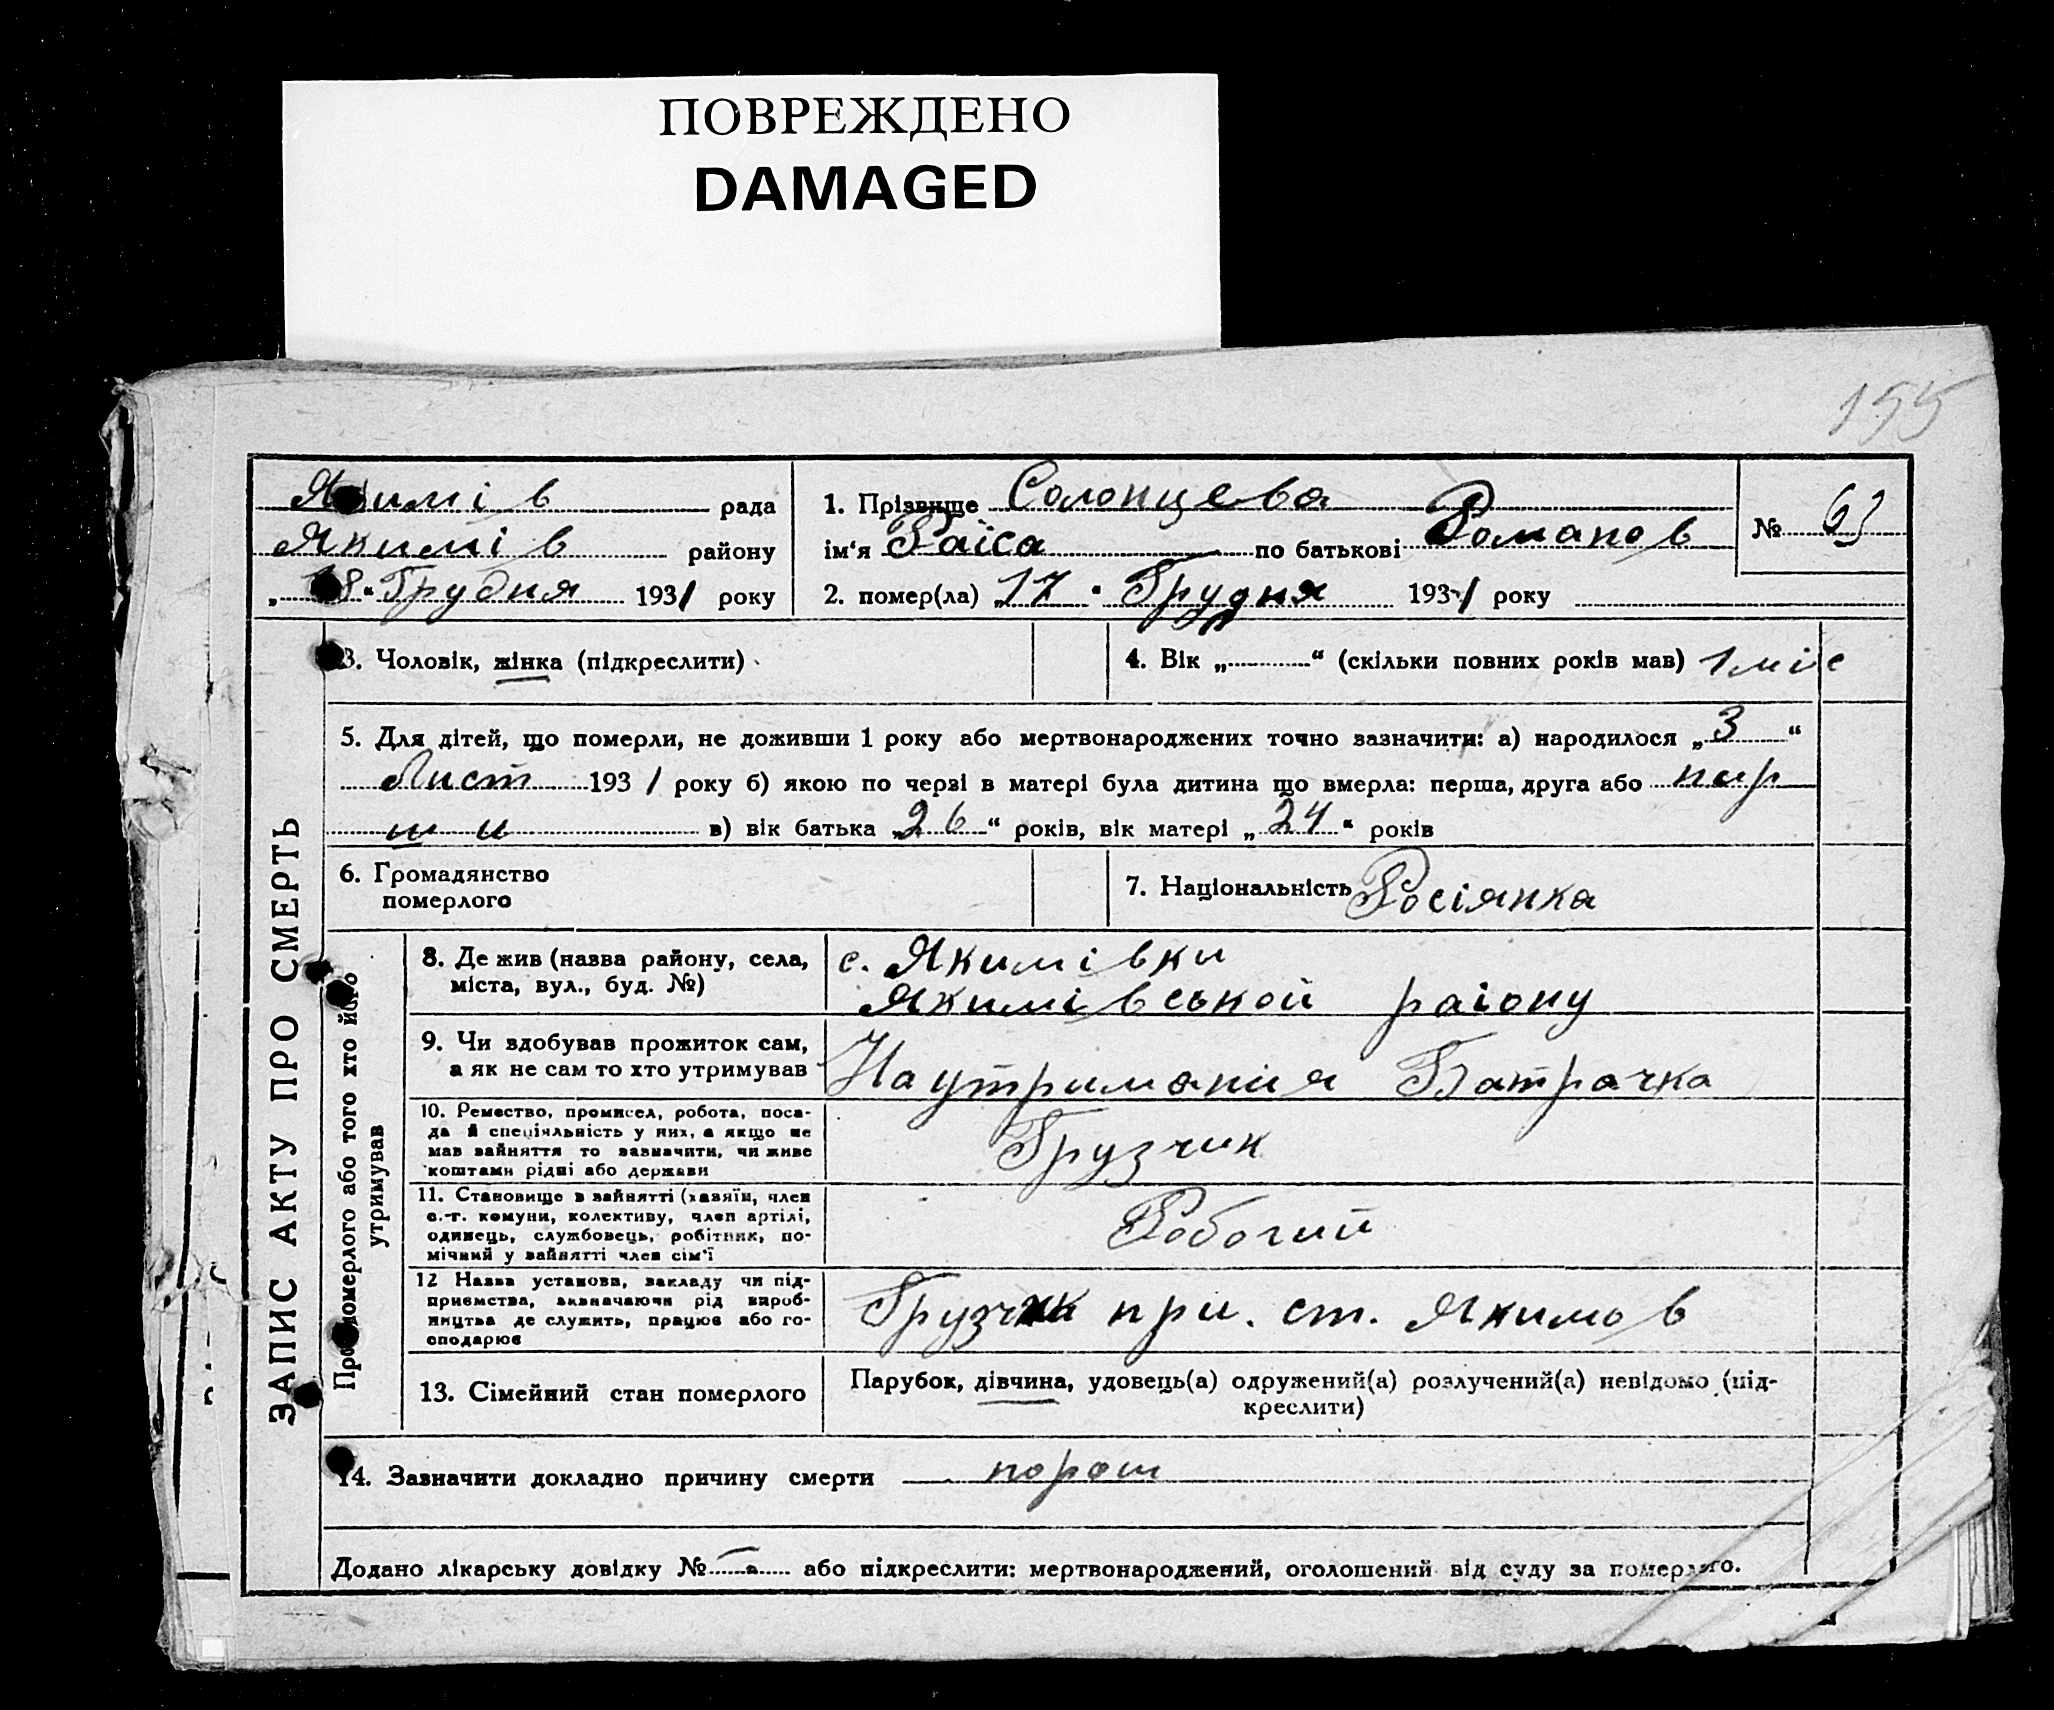 ПОВРЕЖДЕНО
DAMAGED
195
Якимів рада
Якимів району
„18“ Грудня 1931 року
1. Прізвище Солонцева
ім'я Раіса по батькові Романов
№ 63
2. помер(ла) „17“ Грудня 1931 року
3. Чоловік, жінка (підкреслити)
4. Вік „ “ (скільки повних років мав) 1 міс
5. Для дітей, що померли, не доживши 1 року або мертвонароджених точно зазначити: а) народилося „3“
Лист 1931 року б) якою по черзі в матері була дитина що вмерла: перша, друга або пир
ши в) вік батька „26“ років, вік матері „24“ років
6. Громадянство
померлого
7. Національність Росіянка
ЗАПИС АКТУ ПРО СМЕРТЬ
Про померлого або того хто його
утримував
8. Де жив (назва району, села,
міста, вул., буд. №)
с. Якимівки
Якимівськой раіону
9. Чи здобував прожиток сам,
а як не сам то хто утримував
На утриманія Батрачка
10. Ремество, промисел, робота, поса-
да й спеціяльність у них, а якщо не
мав зайняття то зазначити, чи живе
коштами рідні або держави
Грузчик
11. Становище в зайнятті (хазяїн, член
с.-г. комуни, колективу, член артілі,
одинець, службовець, робітник, по-
мічний у зайнятті член сім'ї
Робочий
12 Назва установи, закладу чи під-
приємства, зазначаючи рід вироб-
ництва де служить, працює або го-
сподарює
Грузчик при. ст. Якимов
13. Сімейний стан померлого
Парубок, дівчина, удовець(а) одружений(а) розлучений(а) невідомо (під-
креслити)
14. Зазначити докладно причину смерти порош
Додано лікарську довідку № або підкреслити: мертвонароджений, оголошений від суду за померлого.